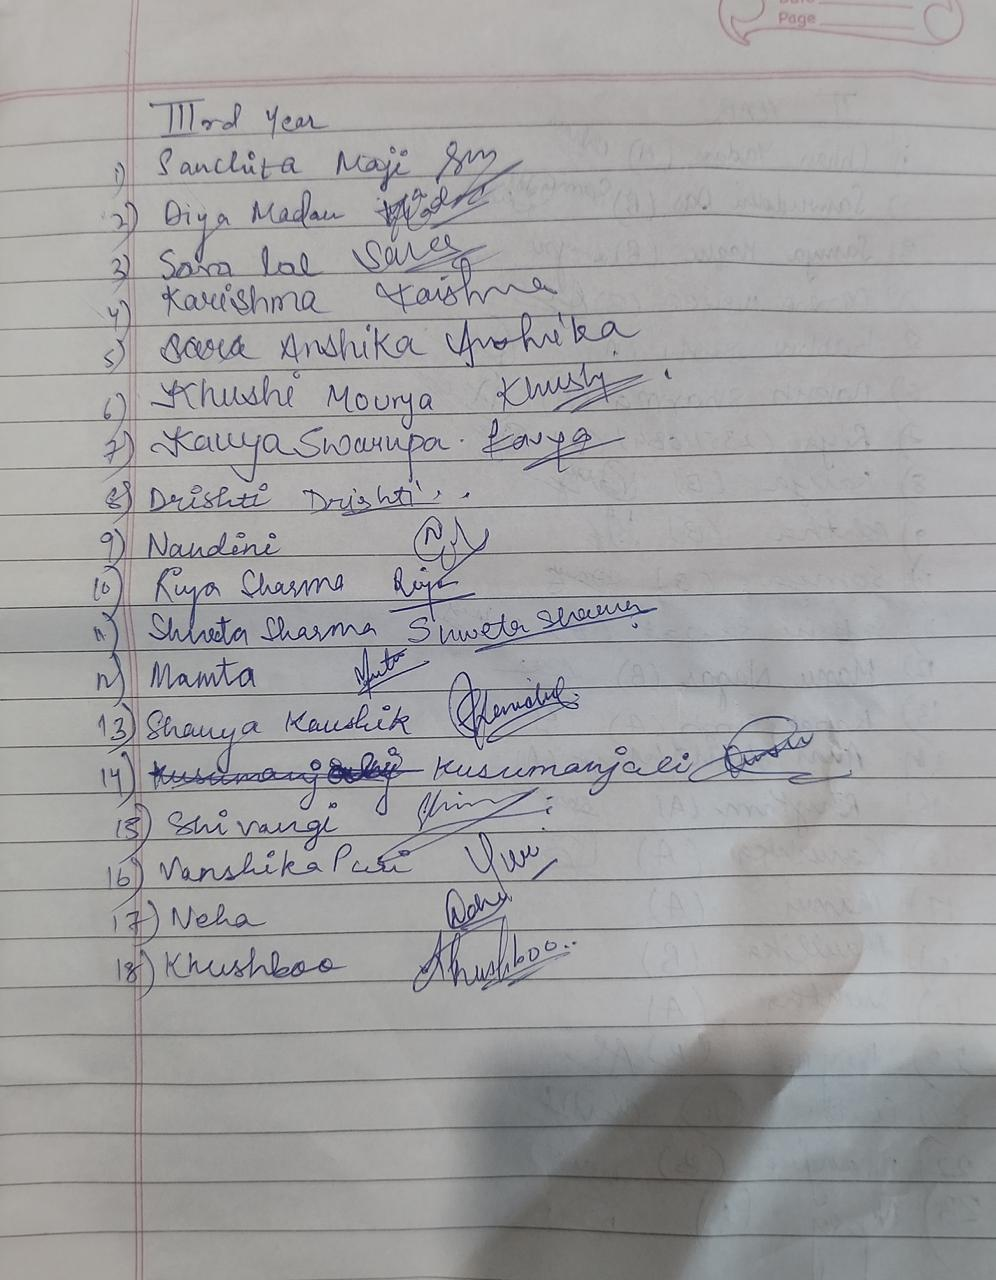 Page
IIIrd Year
1) Sanchita Maji
2) Diya Madan
3) Sara Lal Sara
4) Karishma Karishma
5) Anshika Anshika
6) Khushi Mourya Khushi
7) Kavya Swarupa. Kavya
8) Drishti Drishti
9) Nandini
10) Riya Sharma Riya
11) Shweta Sharma Shweta Sharma
12) Mamta
13) Shaurya Kaushik
14) Kusumanjali
15) Shivangi
16) Vanshika Puri
17) Neha
18) Khushboo Khushboo..